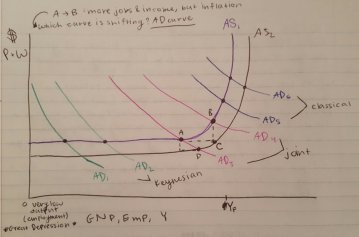 A → B: more jobs & income, but inflation
• which curve is shifting? AD curve
$
P=W
AS₁
AS₂
AD₆
classical
AD₅
AD₄
joint
AD₃
AD₂
AD₁
Keynesian
A
B
C
D
O very low
output
(employment)
*Great Depression*
GNP, Emp, Y
Yₚ